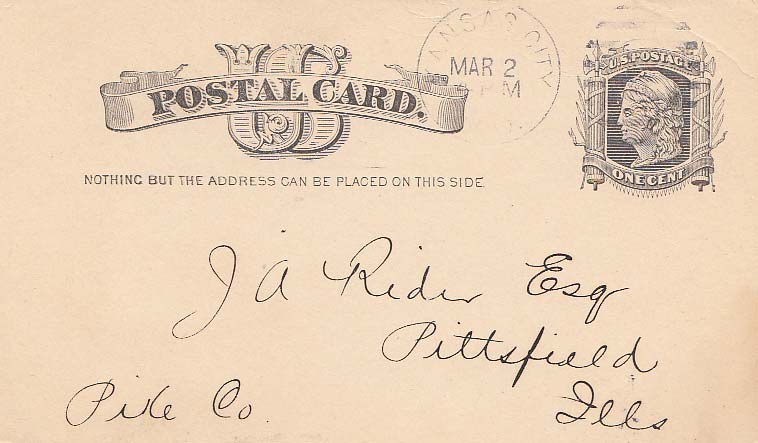 US
POSTAL CARD.
NOTHING BUT THE ADDRESS CAN BE PLACED ON THIS SIDE
ANSAS CITY
MAR 2
PM
U.S. POSTAGE
ONE CENT
J A Rider Esq
Pittsfield
Pike Co. Ills